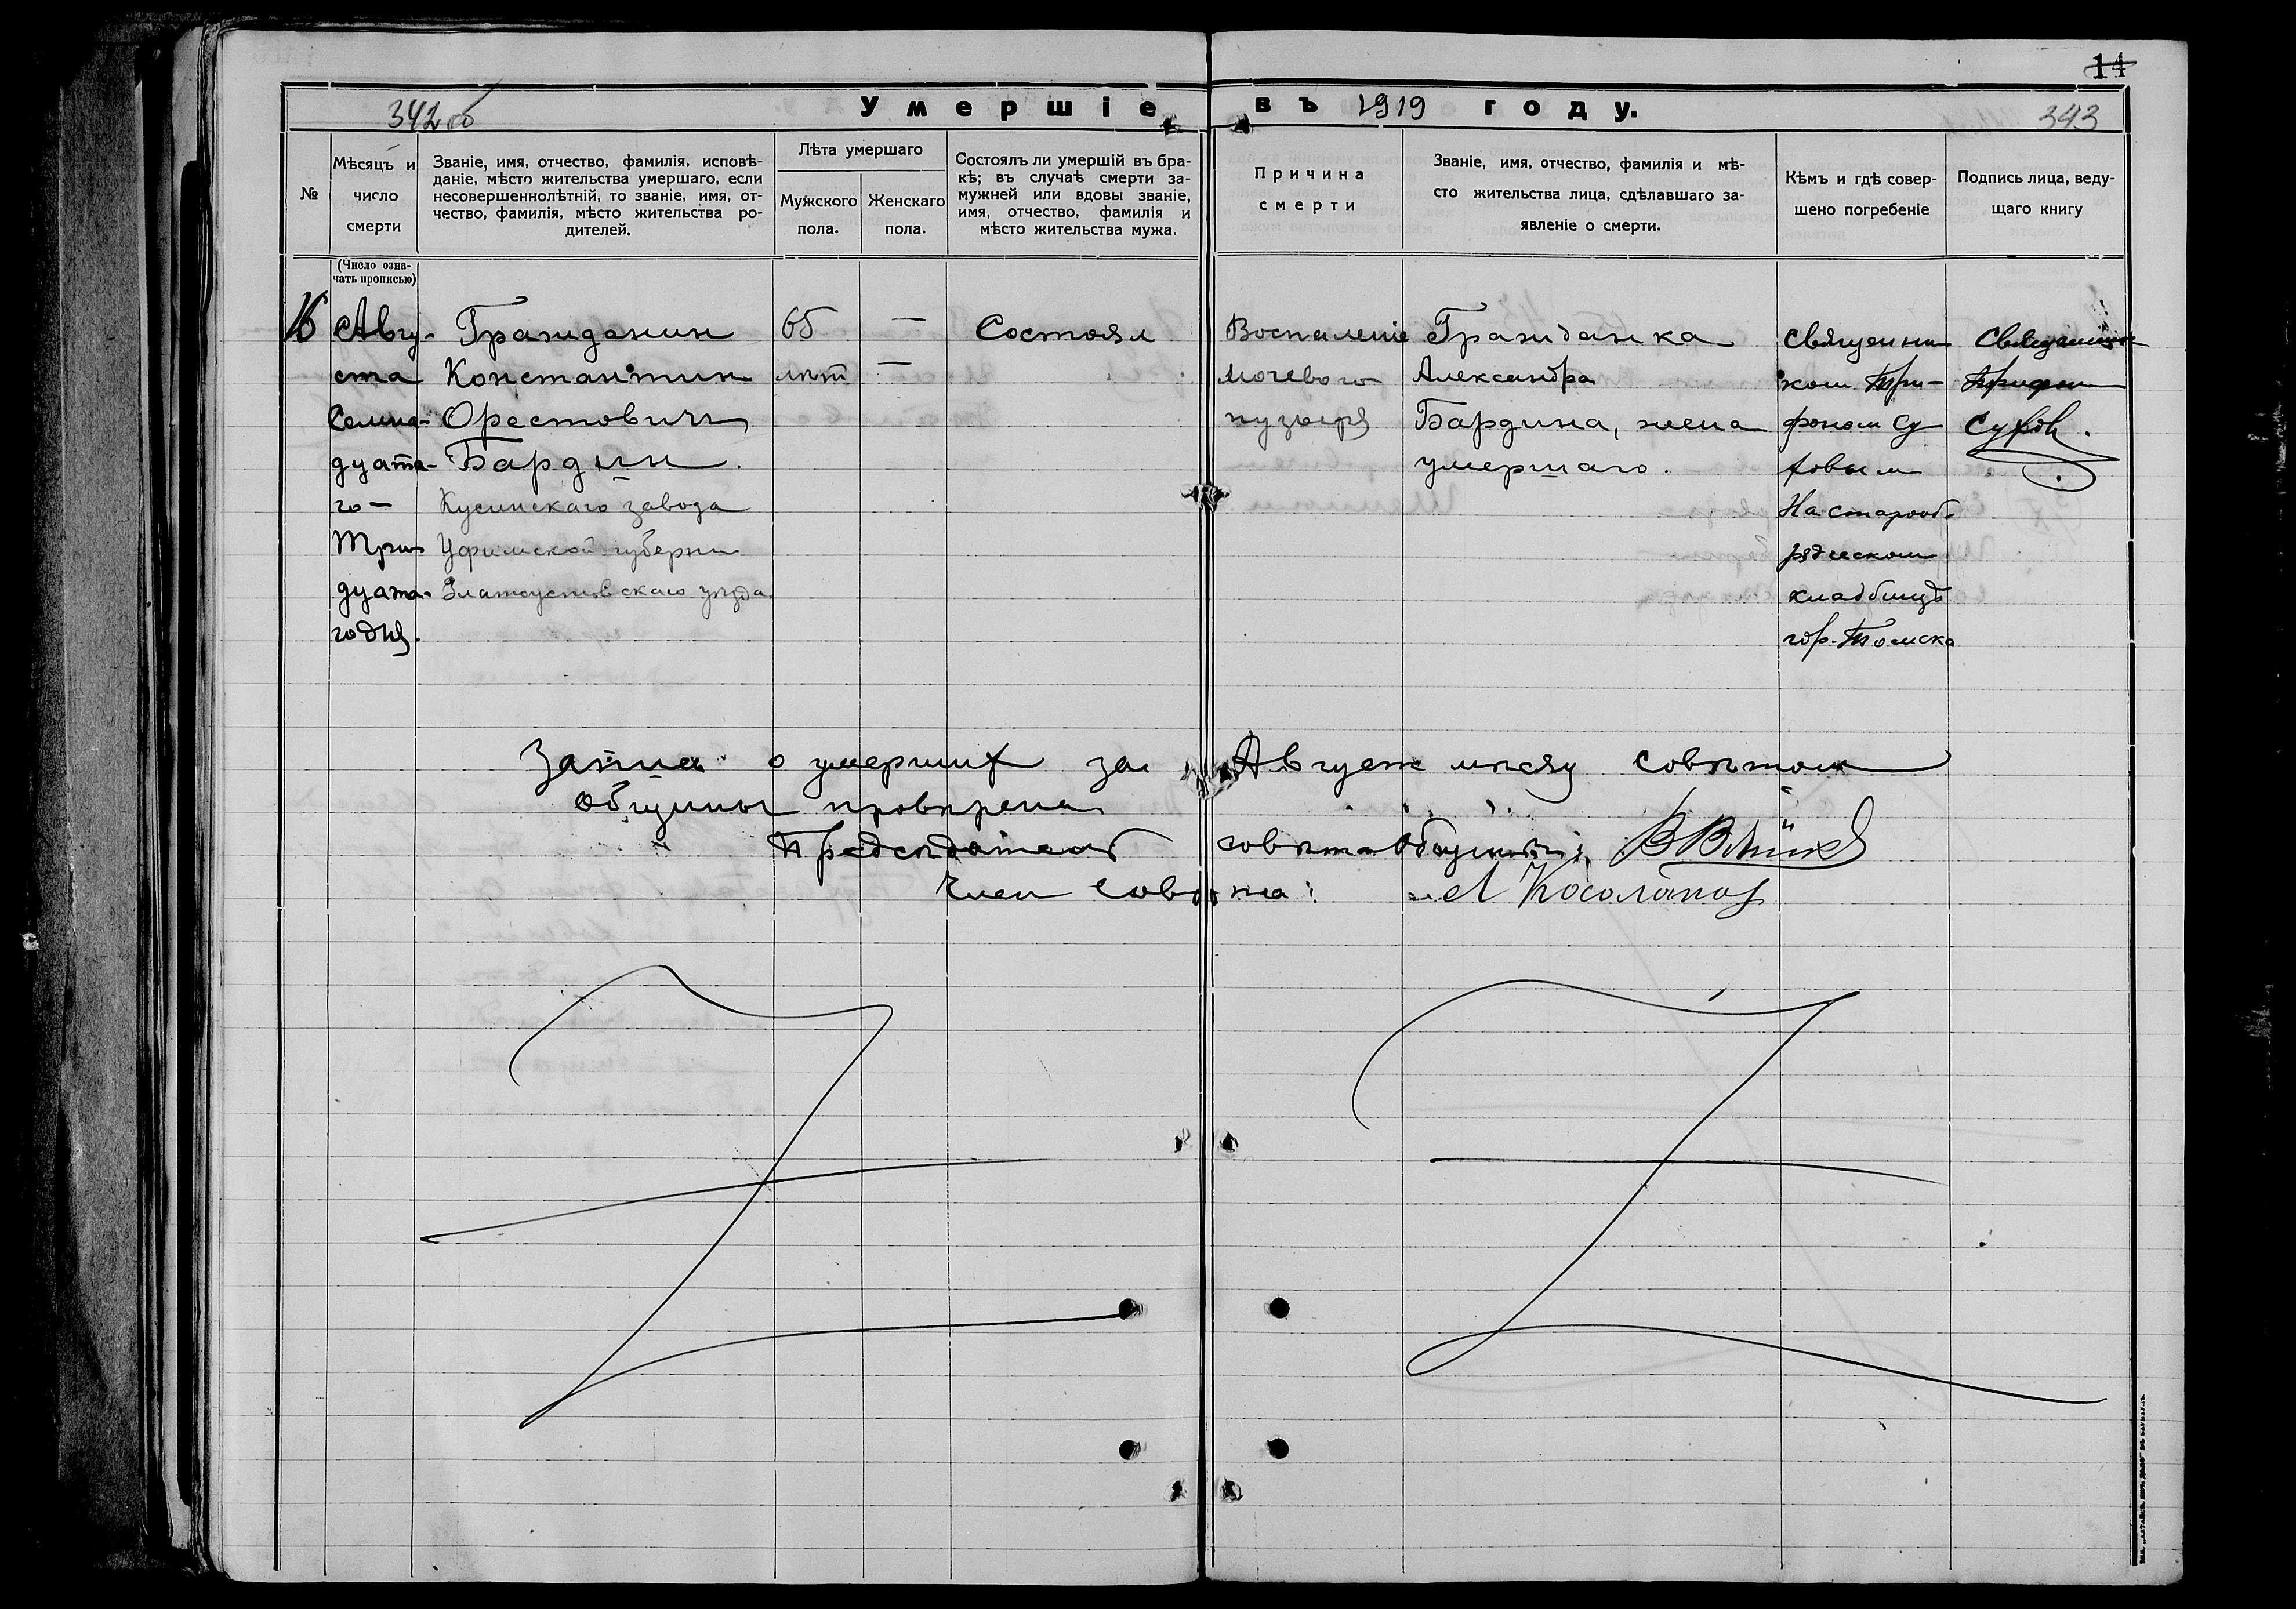 14
342об
Умершіе въ 1919 году.
343
№
Мѣсяцъ и
число
смерти
Званіе, имя, отчество, фамилія, исповѣ-
даніе, мѣсто жительства умершаго, если
несовершеннолѣтній, то званіе, имя, от-
чество, фамилія, мѣсто жительства ро-
дителей.
Лѣта умершаго
Мужского
пола.
Женскаго
пола.
Состоялъ ли умершій въ бра-
кѣ; въ случаѣ смерти за-
мужней или вдовы званіе,
имя, отчество, фамилія и
мѣсто жительства мужа.
Причина
смерти
Званіе, имя, отчество, фамилія и мѣ-
сто жительства лица, сдѣлавшаго за-
явленіе о смерти.
Кѣмъ и гдѣ совер-
шено погребеніе
Подпись лица, веду-
щаго книгу
(Число озна-
чать прописью)
16
Авгу-
ста
Семна-
дцата-
го —
Три-
дцата-
го дня.
Гражданин
Константин
Орестович
Бардин.
Кусинскаго завода
Уфимской губерни
Златоустовскаго уѣзда.
65 —
лѣт —
Состоял
Воспаленіе
мочевого
пузыря
Гражданка
Александра
Бардина, жена
умершаго.
Священни
ком Три-
фоном Су
ховым
На старооб-
рядческом
кладбищѣ
гор. Томска
Священник
Трифон
Сухов.
Запись о умерших за Август мѣсяц совѣтом
общины провѣрена
Предсѣдатель совѣта Общины:
Член Совѣта: А Косолапов